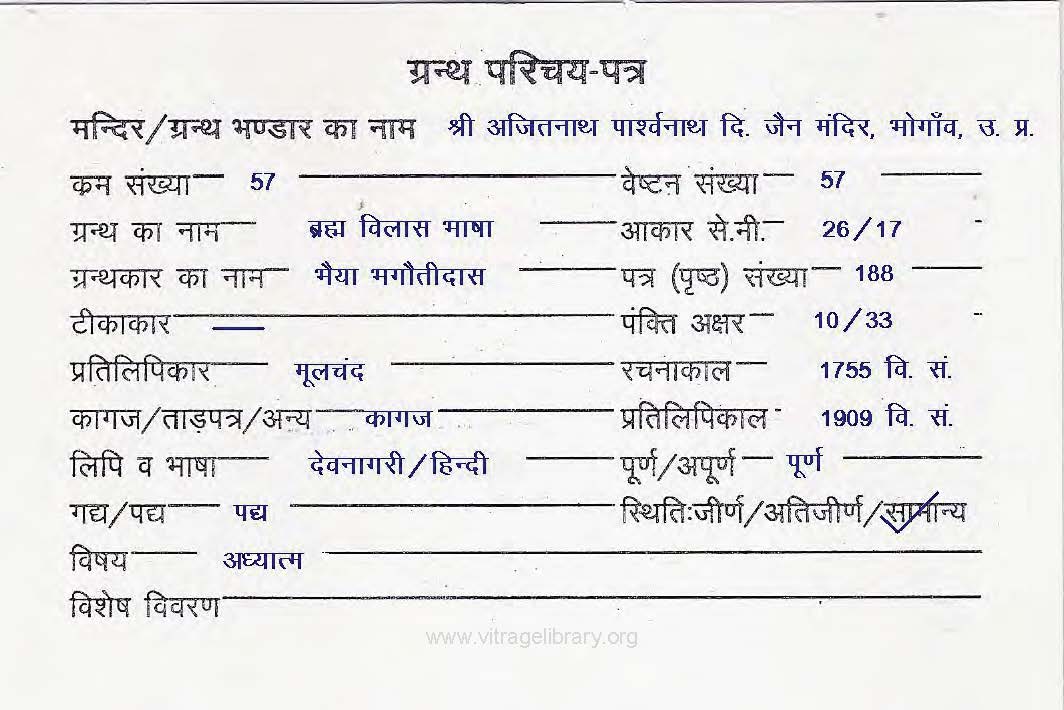 ग्रन्थ परिचय-पत्र
मन्दिर/ग्रन्थ भण्डार का नाम श्री अजितनाथ पार्श्वनाथ दि. जैन मंदिर, भोगाँव, उ. प्र.
क्रम संख्या 57 वेष्टन संख्या 57
ग्रन्थ का नाम ब्रह्म विलास भाषा आकार से.मी. 26/17
ग्रन्थकार का नाम भैया भगौतीदास पत्र (पृष्ठ) संख्या 188
टीकाकार — पंक्ति अक्षर 10/33
प्रतिलिपिकार मूलचंद रचनाकाल 1755 वि. सं.
कागज/ताड़पत्र/अन्य कागज प्रतिलिपिकाल 1909 वि. सं.
लिपि व भाषा देवनागरी/हिन्दी पूर्ण/अपूर्ण पूर्ण
गद्य/पद्य पद्य स्थिति:जीर्ण/अतिजीर्ण/सामान्य
विषय अध्यात्म
विशेष विवरण
www.vitragelibrary.org